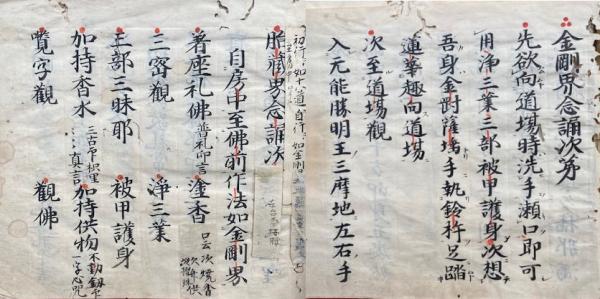 金剛界念誦次第
先欲向道場時洗手漱口即可
用淨三業三部被甲護身次想
吾身金剛薩埵手執鈴杵足踏
蓮華趣向道場
次至道場觀
入元能勝明王三摩地左右手
初行如十八道自行如金剛
胎藏界念誦次
自房中至佛前作法如金剛界
着座礼佛 普礼印言 塗香 口云次燒香
三密觀 淨三業
三部三昧耶 被甲護身
加持香水 三古印 真言 加持供物 不動劒印 一字心咒
覽字觀 觀佛